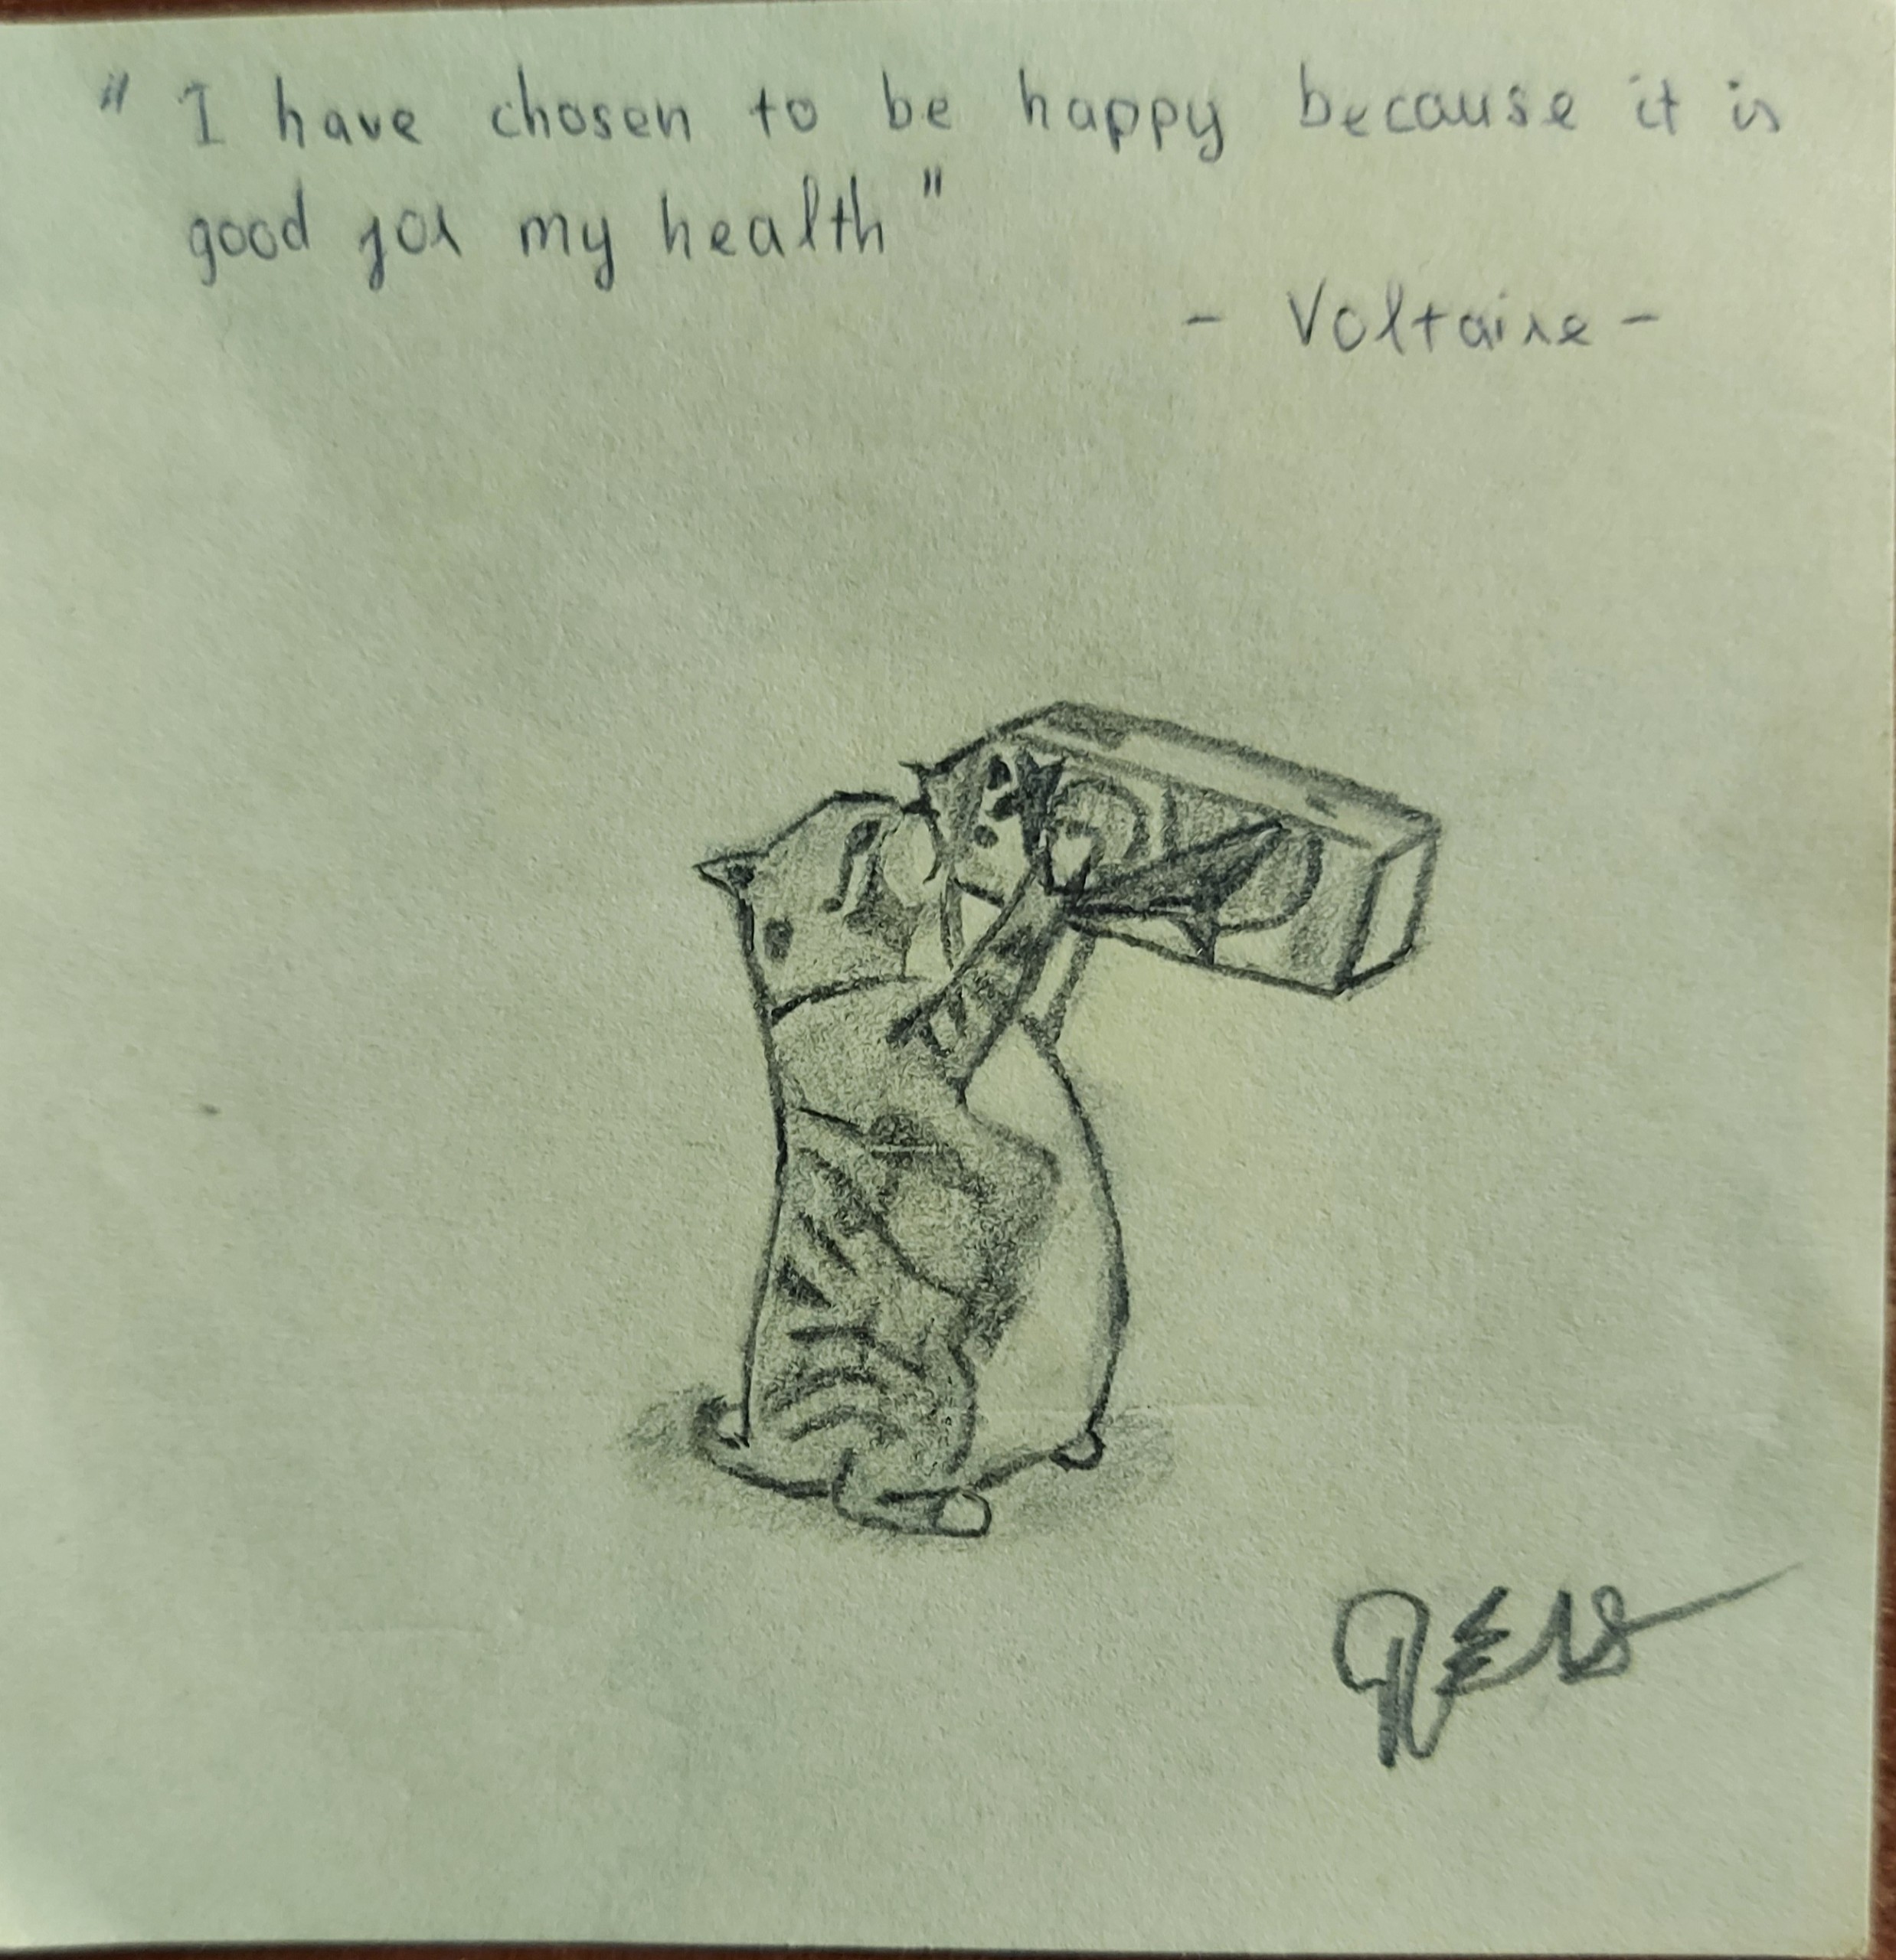 " I have chosen to be happy because it is
good for my health "
- Voltaire -